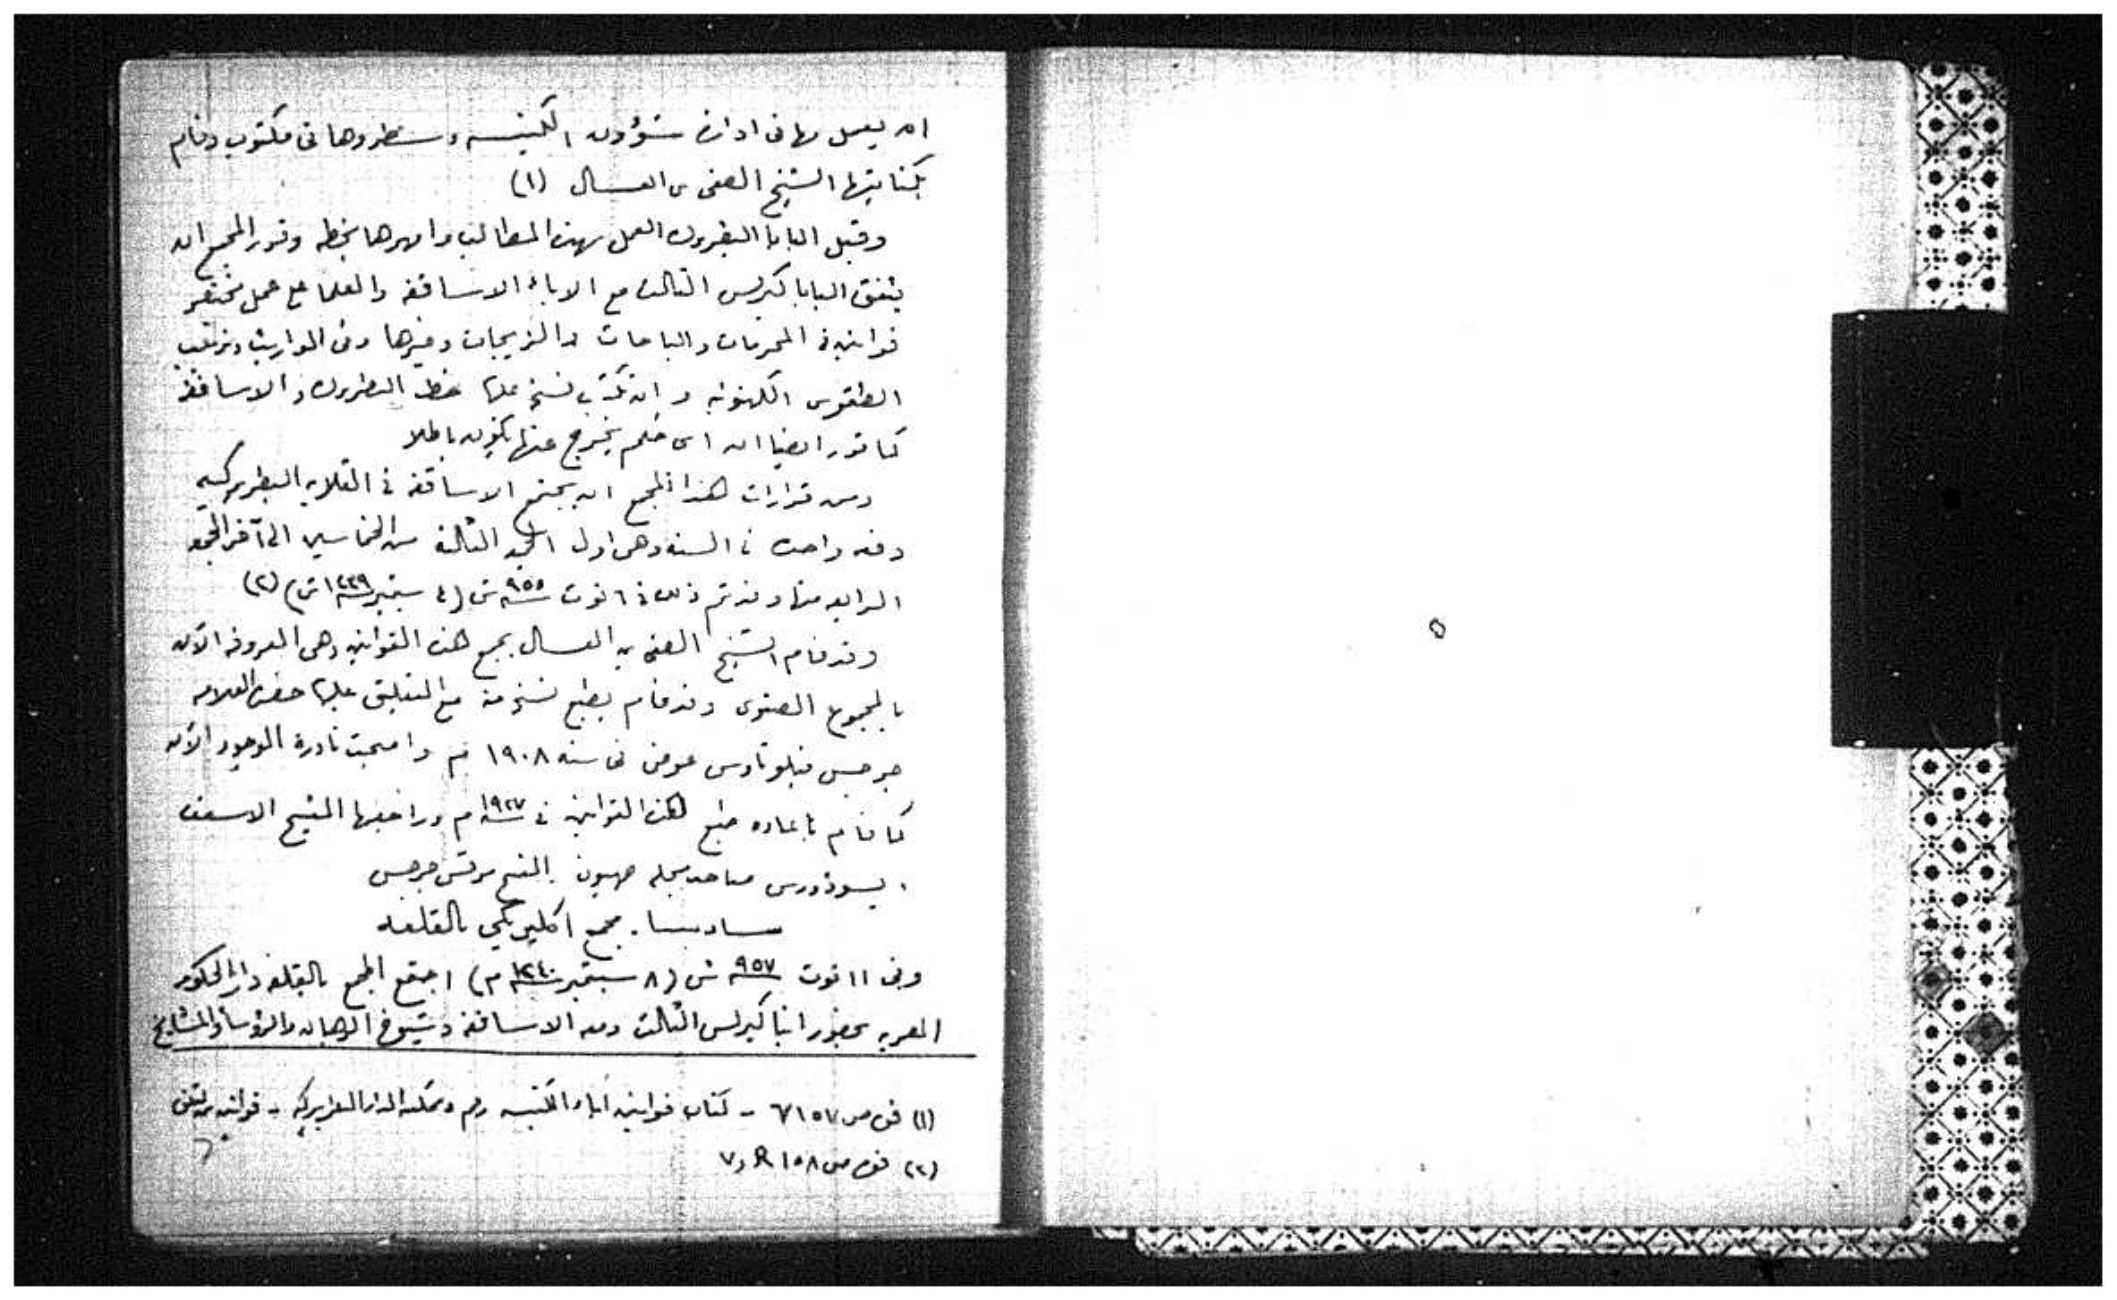 ان يعمل بها فى ادارة شؤون الكنيسه وسطروها فى مكتوب وقام
بكتابتها الشيخ الصفى بن العسال (١)
وقبل البابا البطريرك العمل بهذه المطالب وامهرها بخطه وقرر المجمع ان
يتفق البابا كيرلس الثالث مع الاباء الاساقفه والعلما على عمل مختصر
قوانين فى المحرمات والمباحات والزيجات وغيرها وفى المواريث وترتيب
الطقوس الكهنوتيه وان تكتب نسخ عليها خط البطريرك والاساقفه
كما قرر ايضا ان اى حكم يخرج عنها يكون باطلا
ومن قرارات هذا المجمع ان يجتمع الاساقفه فى القلايه البطريركيه
دفعه واحده فى السنه وهى اول الجمعه الثالثه من الخماسين الى آخر الجمعه
الرابعه منها وقد تم ذلك فى ٦ توت سنة ٩٥٥ ش (٤ سبتمبر سنة ١٢٣٩ م) (٢)
وقد قام الشيخ الصفى بن العسال بجمع هذه القوانين وهى المعروفه الآن
بالمجموع الصفوى وقد قام بطبع نسخ منه مع التعليق عليها حضرة العلامه
جرجس فيلوثاوس عوض فى سنه ١٩٠٨ م واصبحت نادرة الوجود الآن
كما قام باعاده طبع هذه القوانين فى سنة ١٩٢٧ م وراجعها المتنيح الاسقف
ايسوذورس صاحب مجله صهيون القمص مرقس جرجس
سادسا. مجمع اكليريكي بالقلعه
وفى ١١ توت سنة ٩٥٧ ش (٨ سبتمبر سنة ١٢٤٠ م) اجتمع المجمع بالقلعه دار الحكومه
المصريه بحضور انبا كيرلس الثالث ومعه الاساقفه وشيوخ الرهبان والرؤساء والمشايخ
(١) ص ١٥٧ V - كتاب قوانين اباء الكنيسه رقم بمكتبه الدار البطريركيه - قوانين
(٢) ص ١٥٨ R و V